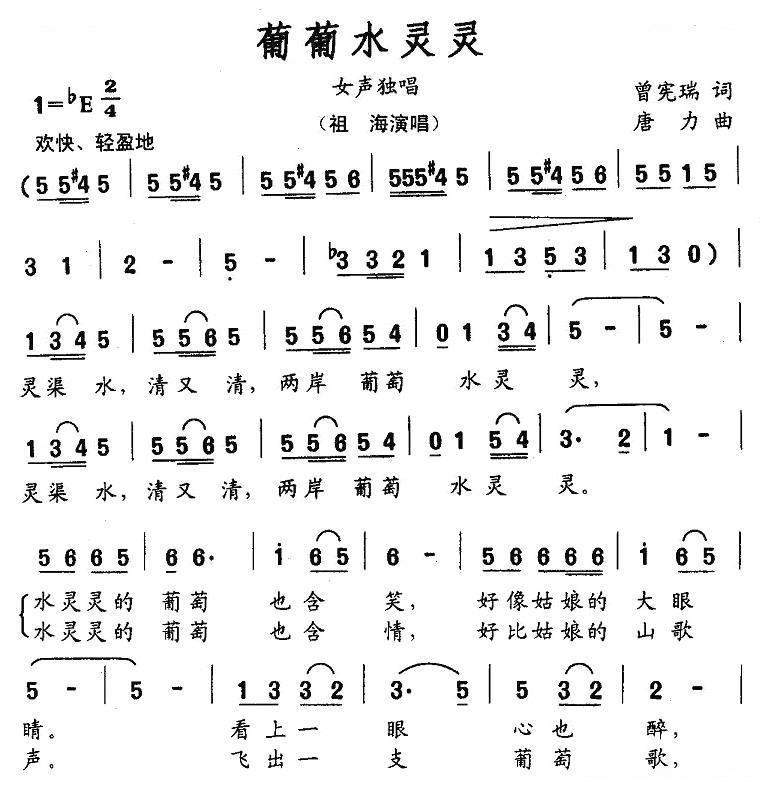 葡萄水灵灵
女声独唱
1=♭E 2/4
曾宪瑞 词
（祖 海演唱）
唐 力 曲
欢快、轻盈地
(5 5#4 5 | 5 5#4 5 | 5 5#4 5 6 | 555#4 5 | 5 5#4 5 6 | 5 5 1 5 |
3 1 | 2 - | 5 - | ♭3 3 2 1 | 1 3 5 3 | 1 3 0) |
1 3 4 5 | 5 5 6 5 | 5 5 6 5 4 | 0 1 3 4 | 5 - | 5 - |
灵渠 水，清又 清，两岸 葡萄 水灵 灵，
1 3 4 5 | 5 5 6 5 | 5 5 6 5 4 | 0 1 5 4 | 3· 2 | 1 - |
灵渠 水，清又 清，两岸 葡萄 水灵 灵。
5 6 6 5 | 6 6· | i 6 5 | 6 - | 5 6 6 6 6 | i 6 5 |
水灵灵的 葡萄 也含 笑，好像姑娘的 大眼
水灵灵的 葡萄 也含 情，好比姑娘的 山歌
5 - | 5 - | 1 3 3 2 | 3· 5 | 5 3 2 | 2 - |
睛。 看上一 眼 心也 醉，
声。 飞出一 支 葡萄 歌，